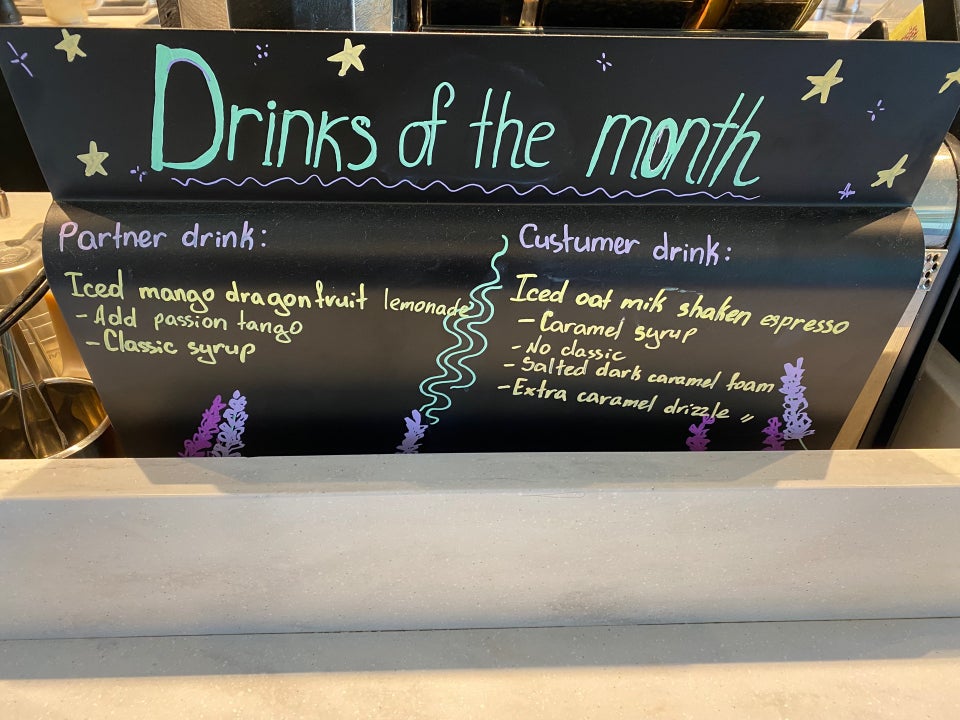 Drinks of the month
Partner drink:
Iced mango dragonfruit lemonade
- Add passion tango
- Classic syrup
Custumer drink:
Iced oat milk shaken espresso
- Caramel syrup
- No classic
- Salted dark caramel foam
- Extra caramel drizzle